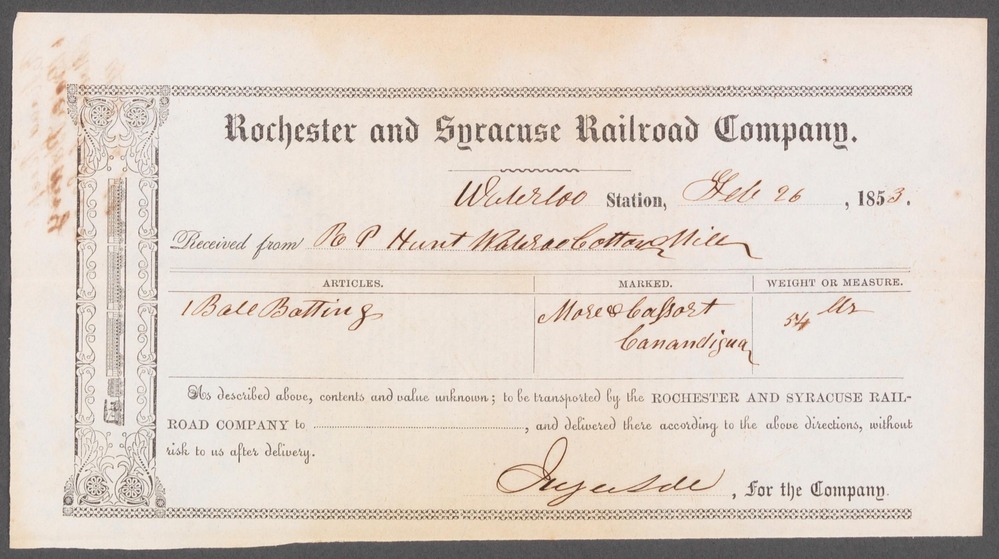 Rochester and Syracuse Railroad Company.
Waterloo Station, Feb 26, 1853.
Received from R P Hunt Waterloo Cotton Mill
ARTICLES. MARKED. WEIGHT OR MEASURE.
1 Bale Batting More & 54
Canandigua
As described above, contents and value unknown; to be transported by the ROCHESTER AND SYRACUSE RAIL-
ROAD COMPANY to , and delivered there according to the above directions, without
risk to us after delivery.
, For the Company.